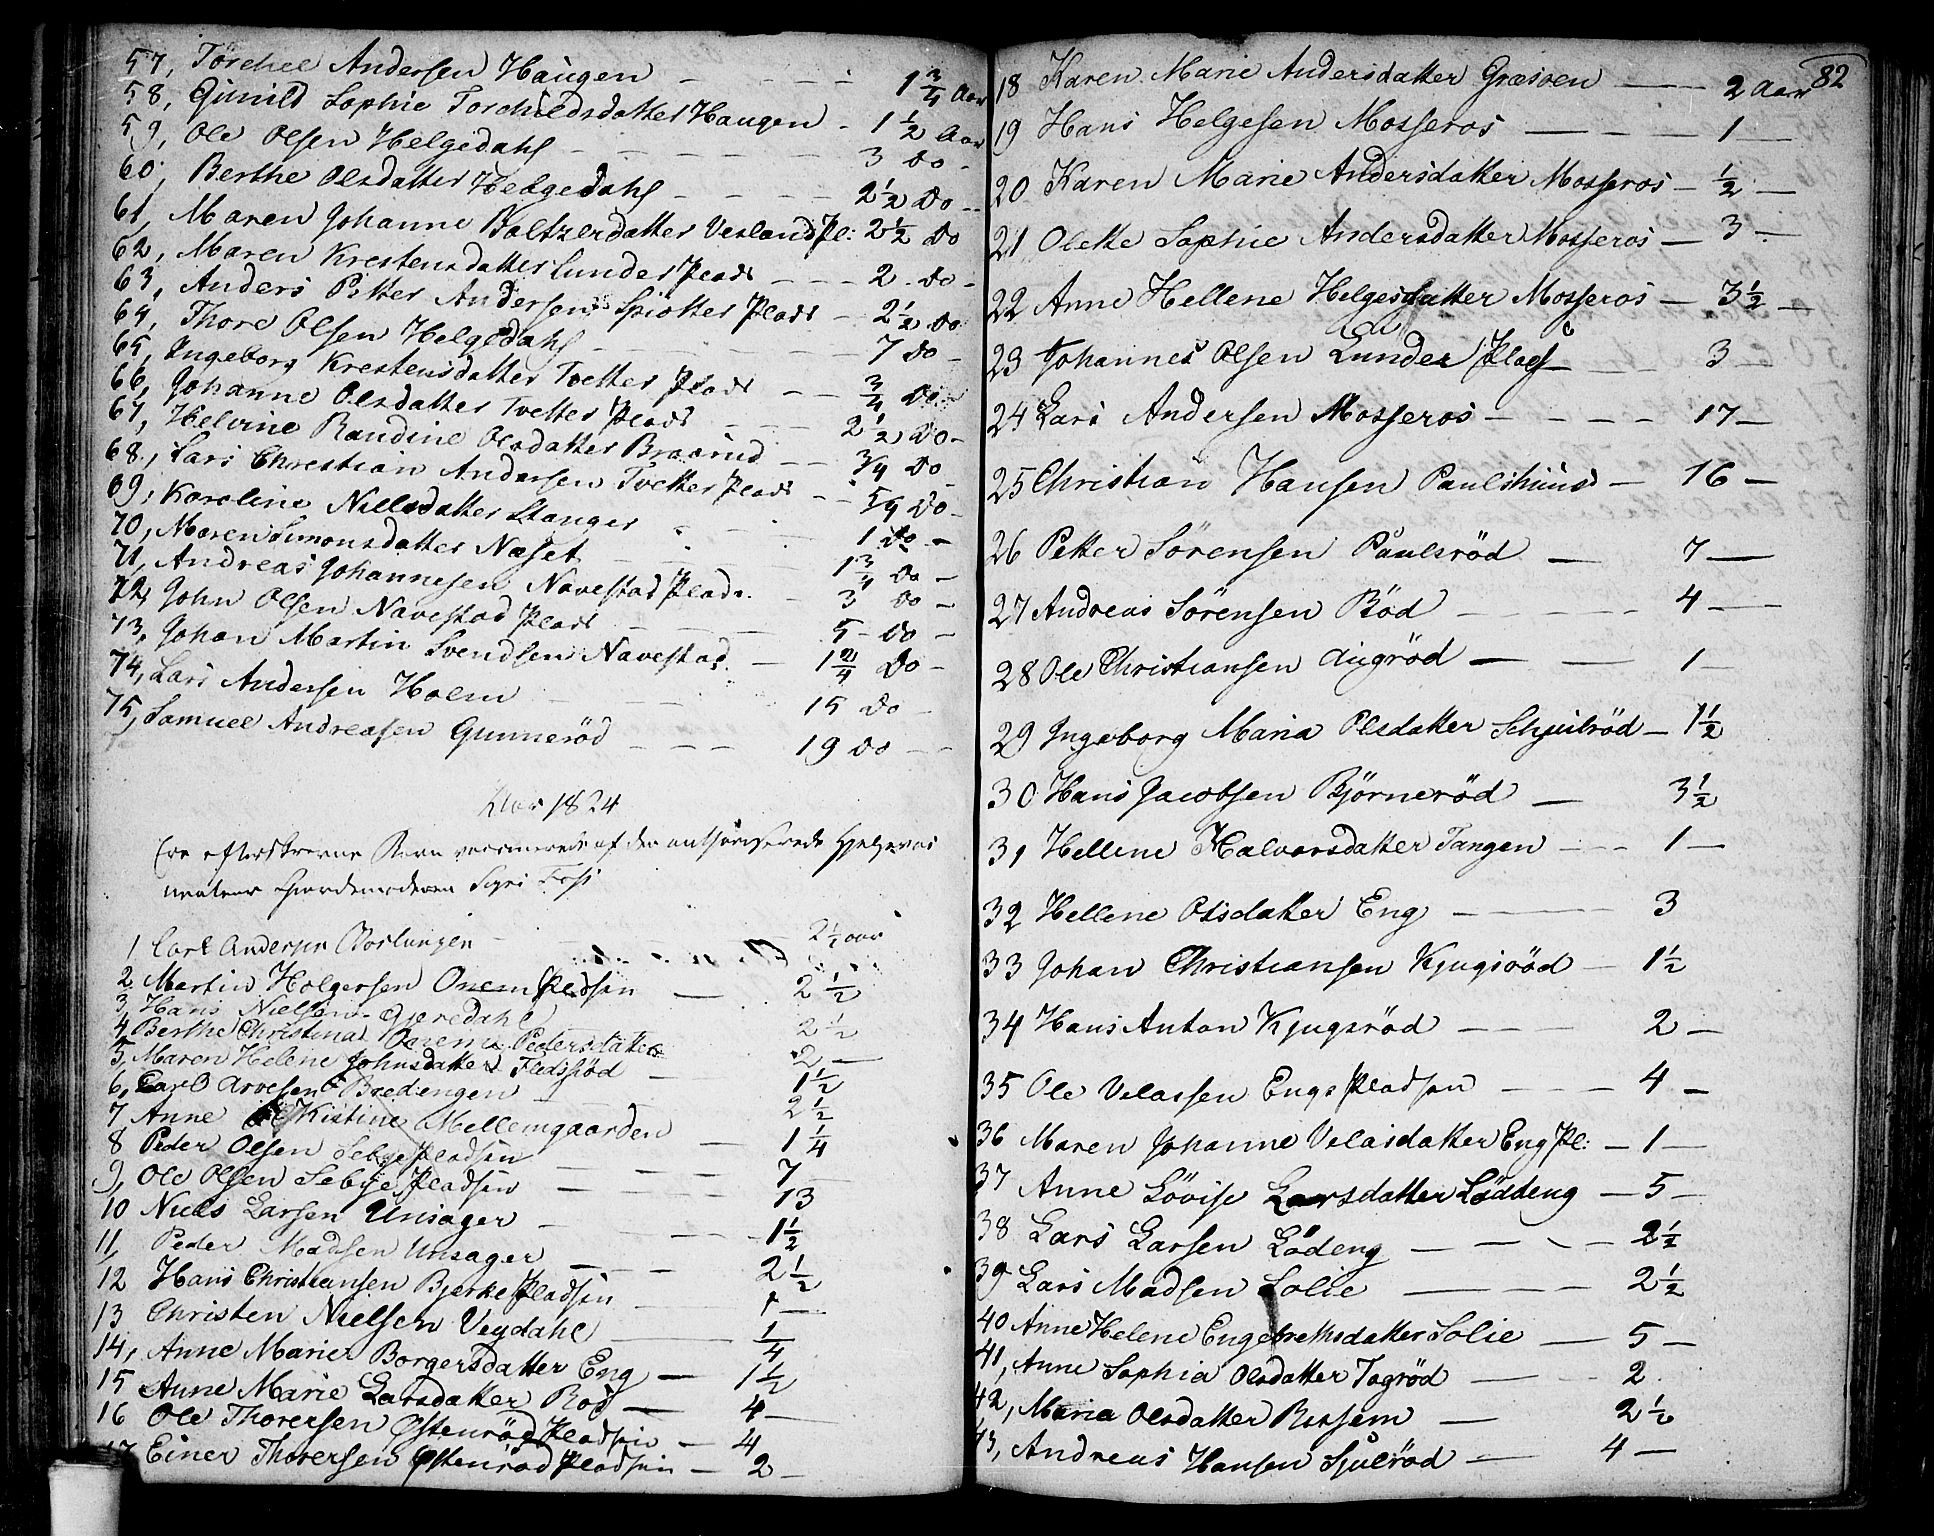 57, Torchel Andersen Haugen - - - - 1 3/4 Aar
58, Gunild Sophie Torchildsdatter Haugen - 1 1/2 Aar
59, Ole Olsen Helgedahl - - - - 3 do -
60, Berthe Olsdatter Helgedahl - - - - 2 1/2 do -
61, Maren Johanne Baltzerdatter Veslandpl: 2 1/2 do
62, Maren Krestensdatter Lunder Plads - - - 2 do -
63, Anders Pitter Andersen Spiotter Plads - 2 1/2 do
64, Thore Olsen Helgedahl - - - - 7 do -
65, Ingeborg Krestensdatter Tvetter Plads - - 3/4 do
66, Johanne Olsdatter Tvetter Plads - - - 2 1/2 do -
67, Helvine Randine Olsdatter Braarud - - 3/4 do
68, Lars Chrestian Andersen Tvetter Plads - - 5/4 do -
69, Karoline Nielsdatter Stanger - - - 1 do -
70, Maren Simonsdatter Næset - - - 1 3/4 do -
71, Andreas Johannesen Navestad Plads - 3 do -
72, John Olsen Navestad Plads - - - 5 - do -
73, Johan Martin Svendsen Navestad - 1 2/4 do -
74, Lars Andersen Holm - - - 15 do -
75, Samuel Andreasen Gunnerød - - - 19 do - -
Aar 1824
Ere efterskrevne Børn vaccinerede af den authoriserede Hjelpevac
Jordemoderen
1 Carl Andersen - - 2 1/2 aar
2 Martin Holgersen Onem Pladsen - 2 1/2
3, Hans Nielsen Gjeredahl
4 Berthe Christina Onem Pedersdatter 2 1/2
5, Maren Helene Johnsdatter - 2 -
6, Carl Arvesen Bredengen - - 1 1/2
7 Anne Kistine Mellemgaarden 2 1/2
8 Peder Olsen Sebye Pladsen - 1 1/4
9, Ole Olsen Sebye Pladsen - - - 7
10 Niels Larsen Unsager - - - 13
11, Peder Madsen Unsager - - - 1 1/2
12 Hans Christiansen Bjerke Pladsen 2 1/2
13 Christen Nielsen Veydahl - - 1 -
14, Anne Marie Borgersdatter Eng - 1/4
15 Anne Marie Larsdatter Rød - 1 1/2
16 Ole Thorersen Østenrød Pladsen - 4 -
17 Einer Thorersen Østenrød Pladsen - 4
2 -
82
18 Karen Marie Andersdatter Græsoen - - 2 Aar
19 Hans Helgesen Mosseros - - - 1 -
20 Karen Marie Andersdatter Mosseros - 1/2 -
21 Olette Sophie Andersdatter Mosseros - 3 -
22 Anne Hellene Helgesdatter Mosseros - 3 1/2 -
23 Johannes Olsen Lunder Plads - - - 3 -
24 Lars Andersen Mosseros - - - - 17 -
25 Christian Hansen Paulshuus - 16 -
26 Petter Sørensen Paulsrød - 7 -
27 Andreas Sørensen Rød - - - - 4 -
28 Ole Christiansen Augrød - - 1 -
29 Ingeborg Maria Olsdatter Schjulrød - 1 1/2
30 Hans Jacobsen Bjørnerød - 3 1/2
31 Hellene Halvorsdatter Tangen - - - 1 -
32 Hellene Olsdatter Eng - - - 3
33 Johan Christiansen Kjugsrød - 1 1/2
34 Hans Anton Kjugsrød - - - 2 -
35 Ole Velassen Engs Pladsen - - - 4 -
36 Maren Johanne Velasdatter Eng Pl: - 1 -
37 Anne Lovise Larsdatter Løddeng - 5 -
38 Lars Larsen Lødeng - - - - 2 1/2
39 Lars Madsen Solie - - - 2 1/2
40 Anne Helene Engebrethsdatter Solie - 5 -
41, Anne Sophia Olsdatter Togrød - - 2
42, Maria Olsdatter Bussem - 2 1/2
43, Andreas Hansen Sjulrød - - 4 -